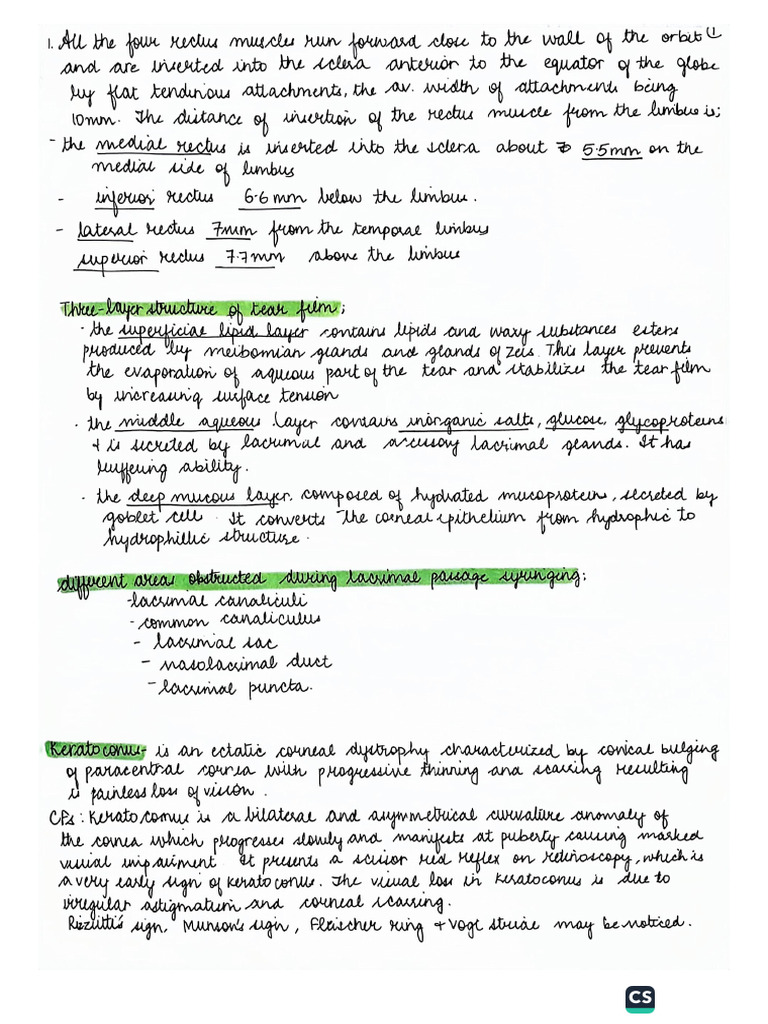 1. All the four rectus muscles run forward close to the wall of the orbit 1
and are inserted into the sclera anterior to the equator of the globe
by flat tendinous attachments, the av. width of attachments being
10mm. The distance of insertion of the rectus muscle from the limbus is;
- the medial rectus is inserted into the sclera about 5.5mm on the
medial side of limbus
- inferior rectus 6.6mm below the limbus.
- lateral rectus 7mm from the temporal limbus
superior rectus 7.7mm above the limbus
Three-layer structure of tear film;
· the superficial lipid layer contains lipids and waxy substances esters
produced by meibomian glands and glands of Zeis. This layer prevents
the evaporation of aqueous part of the tear and stabilizes the tear film
by increasing surface tension
· the middle aqueous layer contains inorganic salts, glucose, glycoproteins
& is secreted by lacrimal and accessory lacrimal glands. It has
buffering ability.
· the deep mucous layer, composed of hydrated mucoprotein, secreted by
goblet cell. It converts the corneal epithelium from hydrophic to
hydrophillic structure.
different areas obstructed during lacrimal passage syringing:
- lacrimal canaliculi
- common canaliculus
- lacrimal sac
- nasolacrimal duct
- lacrimal puncta.
Keratoconus- is an ectatic corneal dystrophy characterized by conical bulging
of paracentral cornea with progressive thinning and scarring resulting
is painless loss of vision.
CFs: Keratoconus is a bilateral and asymmetrical curvature anomaly of
the cornea which progresses slowly and manifests at puberty causing marked
visual impairment It presents a scissor red reflex on retinoscopy, which is
a very early sign of keratoconus. The visual loss in keratoconus is due to
irregular astigmatism and corneal scarring.
Rizutti's sign, Munson's sign, Fleischer ring & Vogt striae may be noticed.
CS